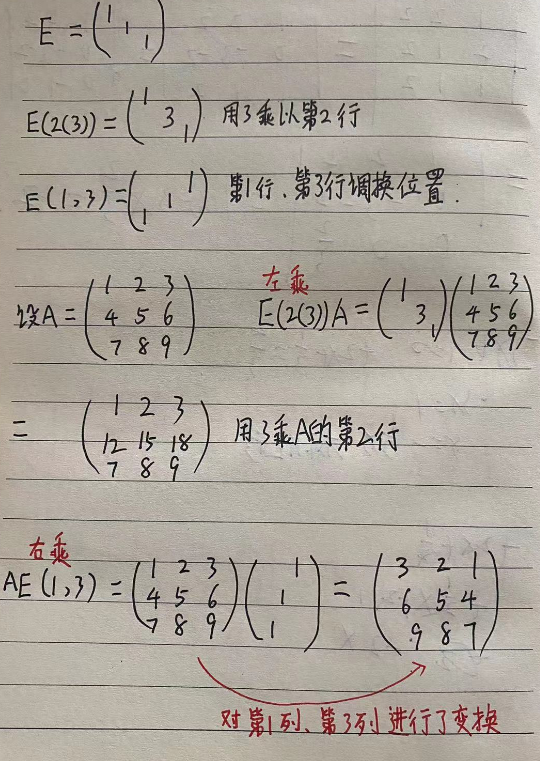 E = (1 1 1)
E(2(3)) = (1 3 1) 用3乘以第2行
E(1,3) = (1 1 1) 第1行、第3行调换位置.
左乘
设A = (1 2 3 4 5 6 7 8 9) E(2(3))A = (1 3 1)(1 2 3 4 5 6 7 8 9)
= (1 2 3 12 15 18 7 8 9) 用3乘A的第2行
右乘
AE(1,3) = (1 2 3 4 5 6 7 8 9)(1 1 1) = (3 2 1 6 5 4 9 8 7)
对第1列、第3列进行了变换